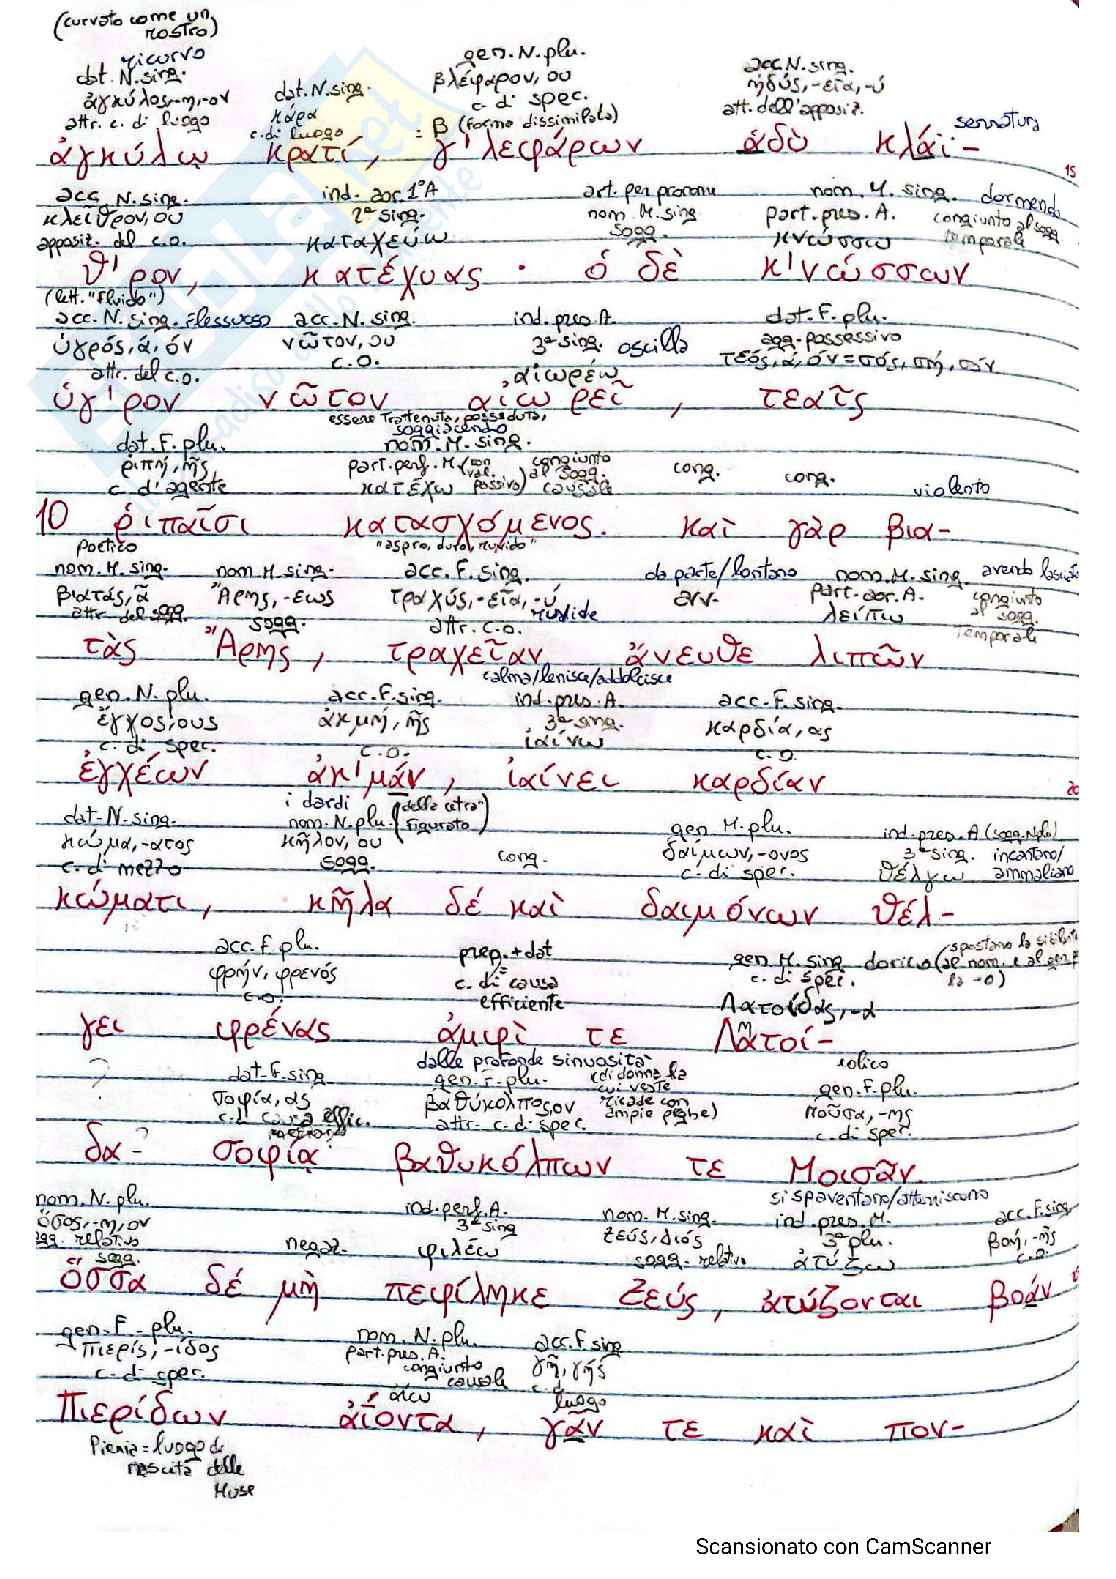 (curvato come un
rostro)
ricurvo
dat. N. sing. gen. N. plu. acc. N. sing.
ἀγκύλος,-η,-ον dat. N. sing. βλέφαρον, ου ἡδύς, -εῖα, -ύ
attr. c. di luogo κάρα c. di spec. att. dell'apposiz.
c. di luogo = β (forma dissimilata) serratura
ἀγκύλῳ κρατί, γ'λεφάρων ἁδὺ κλάϊ- 15
acc. N. sing. ind. aor. 1° A art. per pronome nom. M. sing. dormendo
κλεῖθρον, ου 2ª sing. nom. M. sing part. pres. A. congiunto al sogg
apposiz. del c.o. καταχεύω sogg. κνώσσω temporale
θ'ρον, κατέχυας · ὁ δὲ κ'νώσσων
(lett. "fluido")
acc. N. sing. flessuoso acc. N. sing. ind. pres A. dat. F. plu.
ὑγρός, ά, όν νῶτον, ου 3ª sing. oscilla agg. possessivo
attr. del c.o. c.o. αἰωρέω τεός, ά, όν = σός, σή, σόν
ὑγ'ρον νῶτον αἰωρεῖ, τεαῖς
essere trattenuto, posseduto,
soggiacendo
dat. F. plu. nom. M. sing.
ῥιπή, ῆς part. perf. M (con val. passivo) congiunto al sogg. causale cong. cong.
c. d'agente κατέχω violento
10 ῥιπαῖσι κατασχόμενος. καὶ γὰρ βια-
poetico "aspro, duro, ruvido"
nom. M. sing. nom M sing. acc. F. sing. da parte/lontano nom. M. sing. avendo lasciato
βιατάς, ᾶ Ἄρης, -εως τραχύς, -εῖα, -ύ avv. part. aor. A. congiunto al sogg.
attr. del sogg. sogg. attr. c.o. ruvide λείπω temporale
τὰς Ἄρης, τραχεῖαν ἄνευθε λιπὼν
calma/lenisce/addolcisce
gen. N. plu. acc. F. sing. ind. pres. A. acc. F. sing.
ἔγχος, ους ἀκμή, ῆς 3ª sing. καρδία, ας
c. di spec. c.o. ἰαίνω c.o.
ἐγχέων ἀκ'μάν, ἰαίνει καρδίαν 20
i dardi (della cetra figurato)
dat. N. sing. nom. N. plu. gen M. plu. ind. pres. A (sogg. N. plu)
κῶμα, -ατος κῆλον, ου δαίμων, -ονος 3ª sing. incantano/
c. di mezzo sogg. cong. c. di spec. θέλγω ammaliano
κώματι, κῆλα δέ καὶ δαιμόνων θέλ-
acc. F. plu. prep. + dat gen M. sing dorico
φρήν, φρενός c. di causa c. di spec.
c.o. efficiente Λατοίδας, -α
γει φρένας ἀμφί τε Λατοί-
? dalle profonde sinuosità eolico
dat. F. sing gen. F. plu. (di donna la cui veste ricade con ampie pieghe) gen. F. plu.
σοφία, ας βαθύκολπος, ον Μοῦσα, -ης
c. di causa effic. attr. c. di spec. c. di spec.
δα- σοφίᾳ βαθυκόλπων τε Μοισᾶν.
si spaventano/atteriscono
nom. N. plu. ind. perf. A. nom. M. sing. ind. pres. M. acc. F. sing
ὅσος, -η, ον 3ª sing Ζεύς, Διός 3ª plu. βοή, -ῆς
agg. relativo sogg. negaz. φιλέω sogg. relativo ἀτύζω c.o.
ὅσσα δέ μὴ πεφίληκε Ζεύς, ἀτύζονται βοάν
gen. F. plu. nom. N. plu. acc. F. sing
Πιερίς, -ίδος part. pres. A. γῆ, γῆς
c. di spec. congiunto causale c. di
ἀίω luogo
Πιερίδων ἀίοντα, γᾶν τε καὶ πον-
Pieria = luogo di
nascita delle
Muse
Scansionato con CamScanner